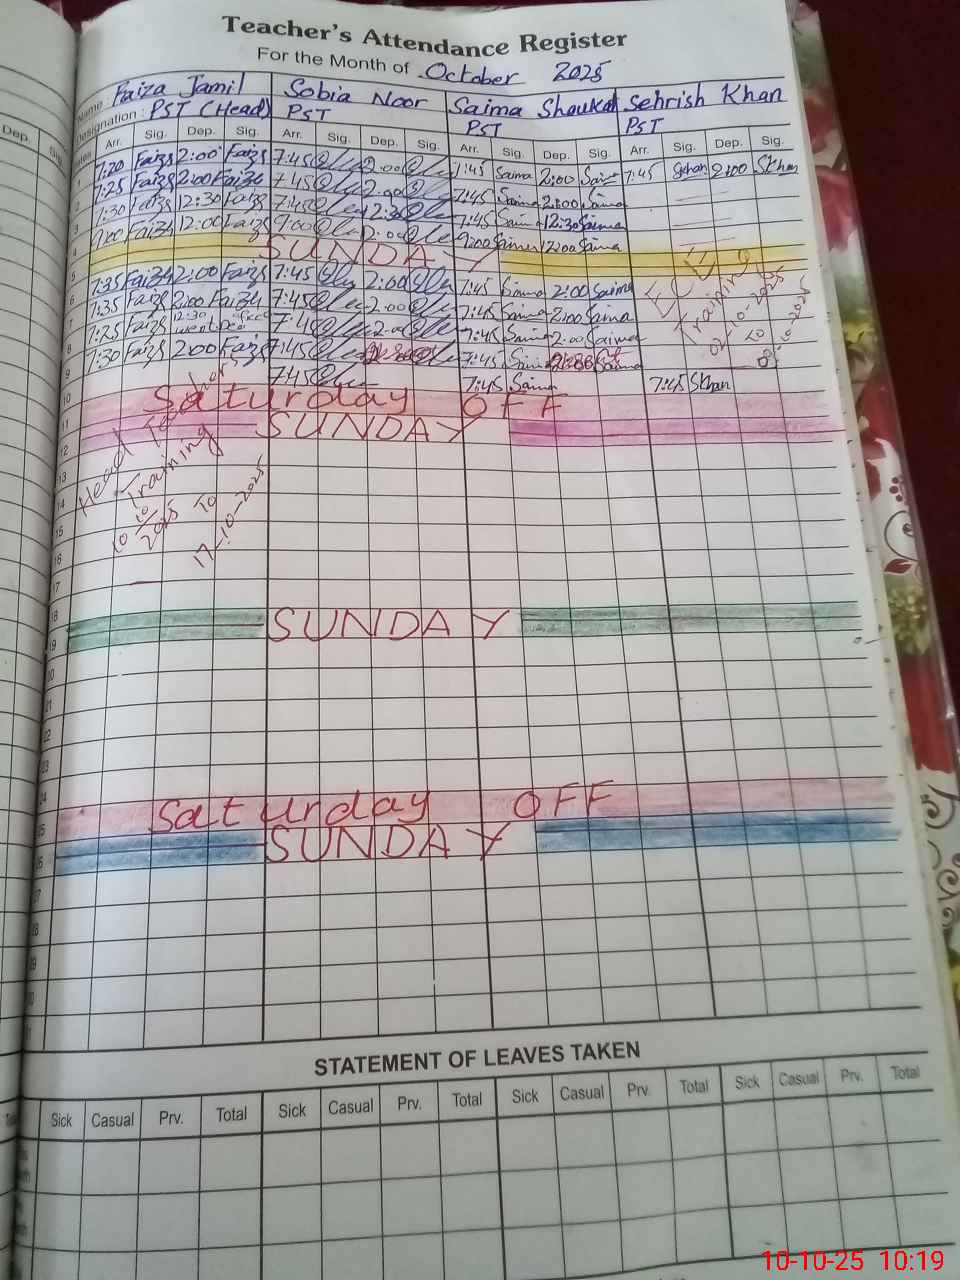 Teacher's Attendance Register
For the Month of October 2025
Name: Faiza Jamil Sobia Noor Saima Shaukat Sehrish Khan
Designation: PST (Head) PST PST PST
Dep. Sig.
Arr. Sig. Dep. Sig. Arr. Sig. Dep. Sig. Arr. Sig. Dep. Sig. Arr. Sig. Dep. Sig.
1 7:20 Faiza 2:00 Faiza 7:45 2:00 7:45 Saima 2:00 Saima 7:45 2:00 SKhan
2 7:25 Faiza 2:00 Faiza 7:45 2:00 7:45 Saima 2:00 Saima
3 7:30 Faiza 12:30 Faiza 7:45 12:30 7:45 Saima 12:30 Saima
4 9:00 Faiza 12:00 Faiza 9:00 9:00 Saima 12:00 Saima
5 SUNDAY
6 7:35 Faiza 2:00 Faiza 7:45 2:00 7:45 Saima 2:00 Saima
7 7:35 Faiza 2:00 Faiza 7:45 2:00 7:45 Saima 2:00 Saima
8 7:25 Faiza 12:30 7:45 2:00 7:45 Saima 2:00 Saima
9 7:30 Faiza 2:00 Faiza 7:45 7:45 Saima Saima
7:45 7:45 Saima 7:45 SKhan
ECCE
Training
02-10-2025
to
08-10-2025
10
Saturday OFF
11
SUNDAY
12
Head Teacher
Training
10/10/2025 To
17-10-2025
13
14
15
16
17
18
SUNDAY
19
20
21
22
23
24
Saturday OFF
25
SUNDAY
26
27
28
29
30
31
STATEMENT OF LEAVES TAKEN
Sick Casual Prv. Total Sick Casual Prv. Total Sick Casual Prv. Total Sick Casual Prv. Total
10-10-25 10:19